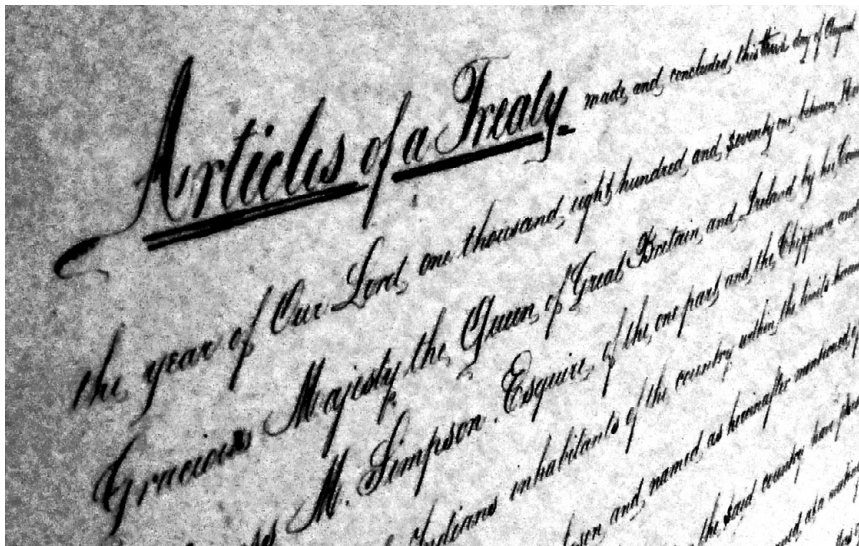 Articles of a Treaty made and concluded this third day of August
the year of Our Lord, one thousand eight hundred and seventy one, between
Gracious Majesty the Queen of Great Britain and Ireland by
M. Simpson. Esquire, of the one part and the Chippewa and
Indians inhabitants of the country within the limits
and named as hereinafter mentioned
the said country have